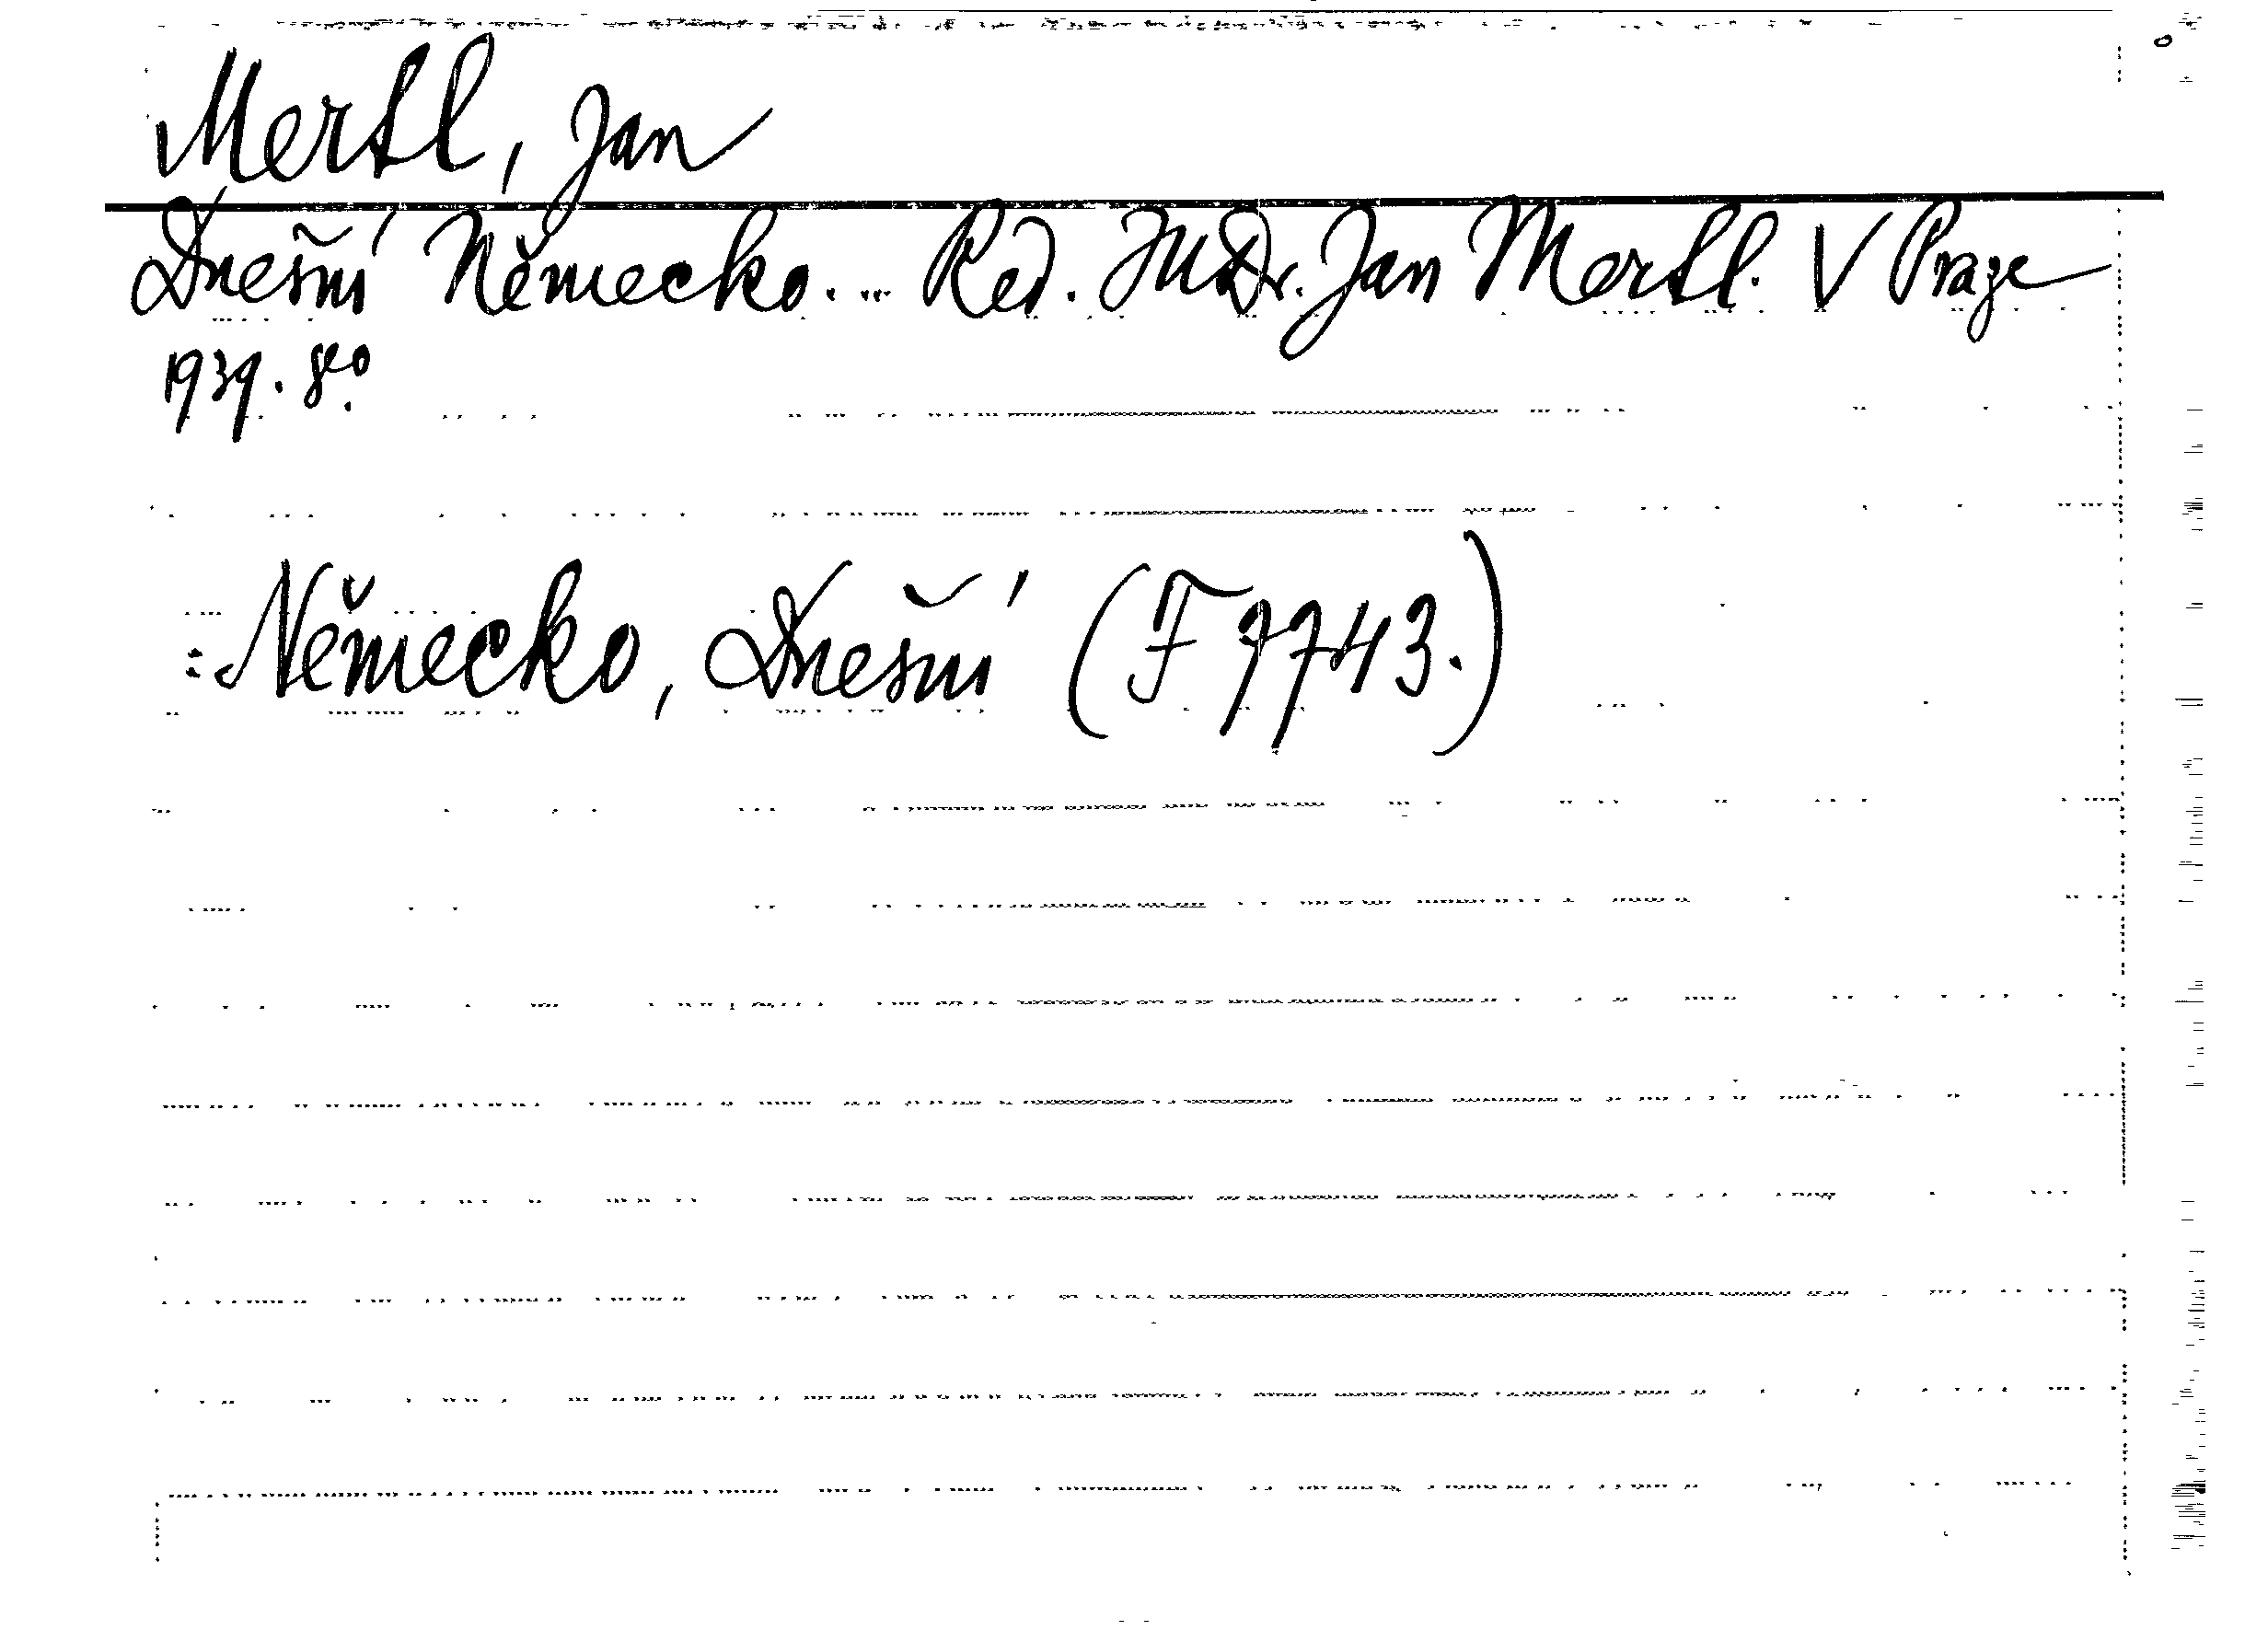 Mertl, Jan
Dnešní Německo. ... Red. JUDr. Jan Mertl. V Praze
1939. 8°.
: Německo, Dnešní (F 7743.)